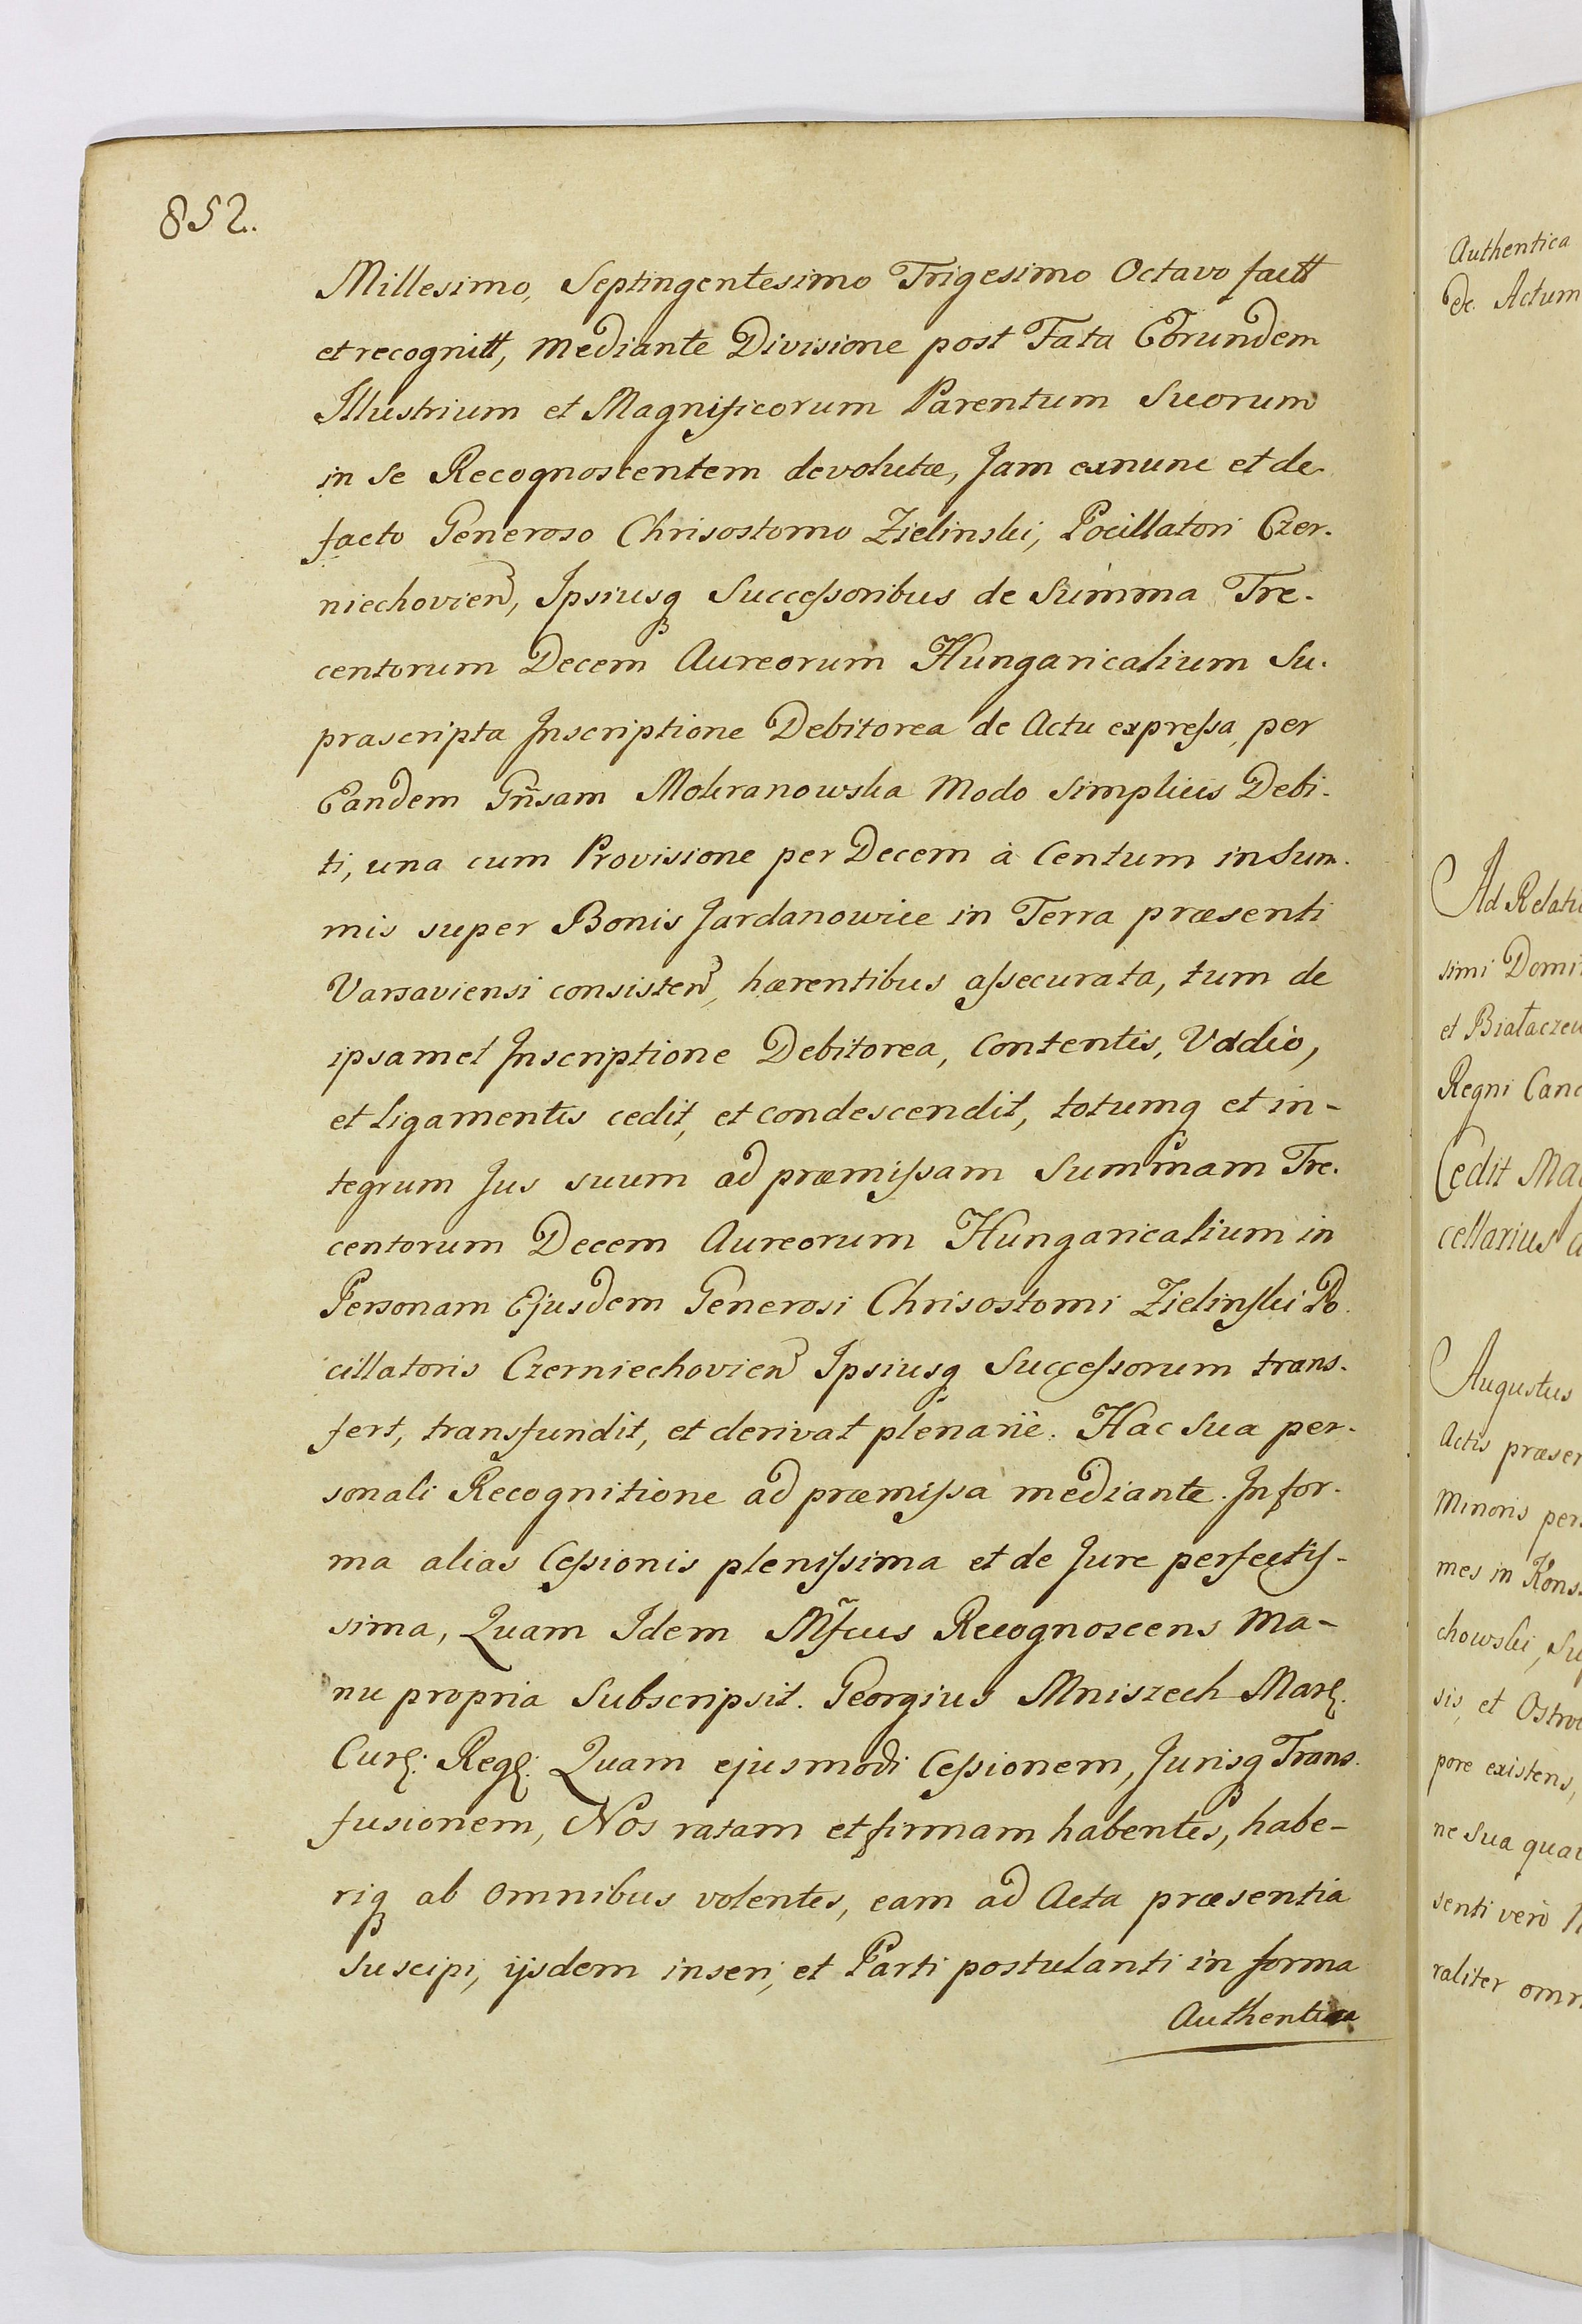 852.
Millesimo, Septingentesimo Trigesimo Octavo factt
et recognitt, mediante Divisione post Fata Eorundem
Illustrium et Magnificorum Parentum Suorum
in se Recognoscentem devolutæ, Jam exnunc et de
facto Generoso Chrisostomo Zielinski, Pocillatori Czer-
niechovien, Ipsiusq Succeſsoribus de Summa Tre-
centorum Decem Aureorum Hungaricalium Su-
prascripta Inscriptione Debitorea de Actu expreſsa, per
Eandem Gñsam Mokranowska Modo Simplicis Debi-
ti, una cum Provisione per Decem à Centum in Sum-
mis super Bonis Jardanowice in Terra præsenti
Varsaviensi consisten, hærentibus aſsecurata, tum de
ipsamet Inscriptione Debitorea, Contentis, Vadio,
et Ligamentis cedit, et condescendit, totumq et in-
tegrum Jus suum ad præmiſsam Summam Tre-
centorum Decem Aureorum Hungaricalium in
Personam Ejusdem Generosi Chrisostomi Zielinſki Po-
cillatoris Czerniechovien Ipsiusq Succeſsorum trans-
fert, transfundit, et derivat plenariè. Hac Sua per-
sonali Recognitione ad præmiſsa mediante. In for-
ma alias Ceſsionis pleniſsima et de Jure perfectiſ-
sima, Quam Idem Mfcus Recognoscens Ma-
nu propria Subscripsit. Georgius Mniszech Marſ.
Curſ: Regſ: Quam ejusmodi Ceſsionem, Jurisq Trans-
fusionem, Nos ratam et firmam habentes, habe-
riq ab omnibus volentes, eam ad Acta præsentia
Suscipi, ijsdem inseri, et Parti postulanti in forma
Authentica
Authentica
dc. Actum
Ad Relati
simi Domi
et Białaczew
Regni Canc
Cedit Mag
cellarius
Augustus
Actis præsen
Minoris pers
mes in Kons
chowski, Su
sis, et Ostro
pore existens,
ne Sua qua
senti verò
raliter omn